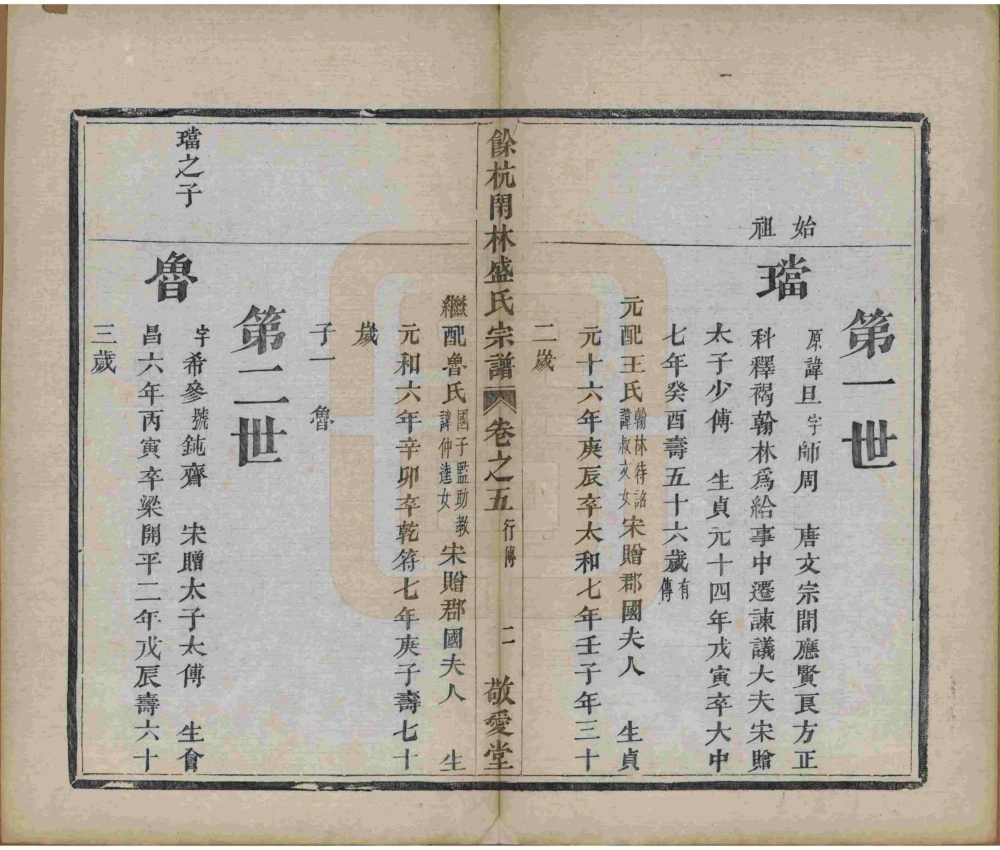 第一世
始祖
璫
原諱旦字師周　唐文宗間應賢良方正
科釋褐翰林爲給事中遷諫議大夫宋贈
太子少傅　生貞元十四年戊寅卒大中
七年癸酉壽五十六歲有傳
元配王氏翰林待詔諱叔文女宋贈郡國夫人　生貞
元十六年庚辰卒太和七年壬子年三十
二歲
餘杭閑林盛氏宗譜　卷之五　行傳　二　敬愛堂
繼配魯氏國子監助教諱仲達女宋贈郡國夫人　生
元和六年辛卯卒乾符七年庚子壽七十
歲
子一　魯
第二世
璫之子
魯
字希參號鈍齋　宋贈太子太傅　生會
昌六年丙寅卒梁開平二年戊辰壽六十
三歲